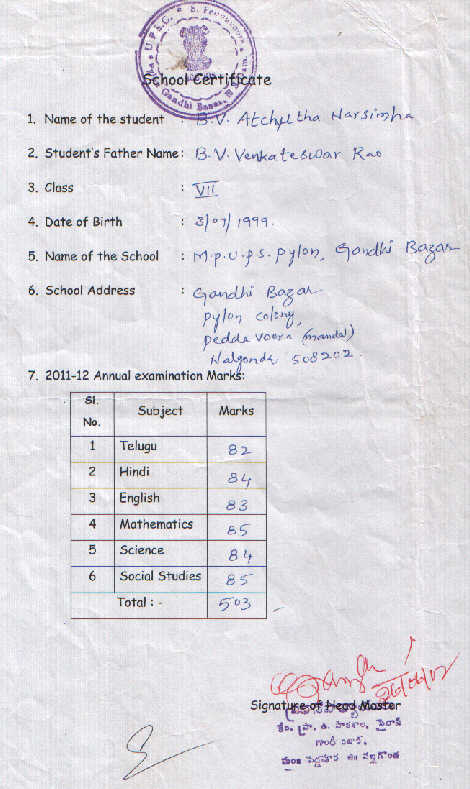 School Certificate
1. Name of the student : B.V. Atchyutha Narsimha
2. Student's Father Name: B.V. Venkateswar Rao
3. Class : VII
4. Date of Birth : 3/07/1999.
5. Name of the School : M.P.U.P.S. Pylon, Gandhi Bazar
6. School Address : Gandhi Bazar
Pylon colony,
Pedda voora (mandal)
Nalgonda 508202.
7. 2011-12 Annual examination Marks:
Sl. No. Subject Marks
1 Telugu 82
2 Hindi 84
3 English 83
4 Mathematics 85
5 Science 84
6 Social Studies 85
Total : - 503
Signature of Head Master